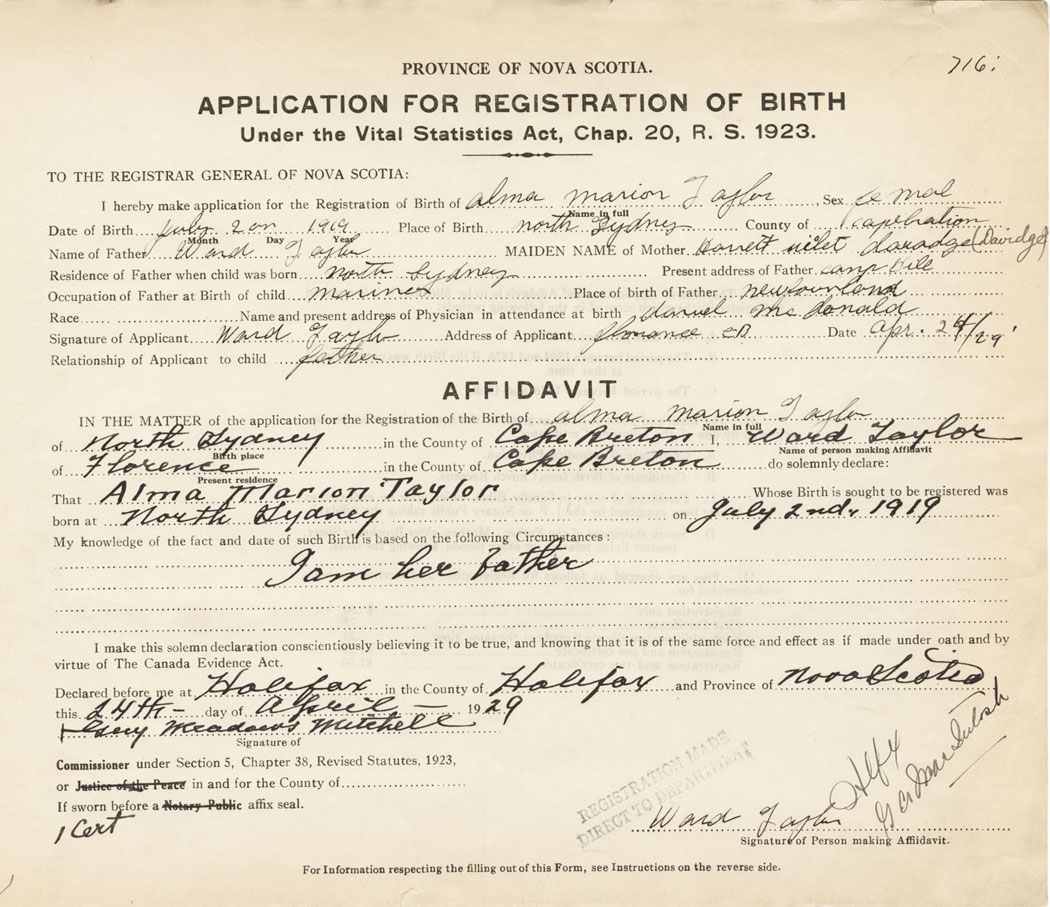 716
PROVINCE OF NOVA SCOTIA.
APPLICATION FOR REGISTRATION OF BIRTH
Under the Vital Statistics Act, Chap. 20, R. S. 1923.
TO THE REGISTRAR GENERAL OF NOVA SCOTIA:
I hereby make application for the Registration of Birth of alma marion Taylor Sex
Name in full
Date of Birth July 2 1919 Place of Birth north Sydney County of
Month Day Year
Name of Father Ward Taylor MAIDEN NAME of Mother (Davidge)
Residence of Father when child was born north Sydney Present address of Father camp Hill
Occupation of Father at Birth of child mariner Place of birth of Father newfounland
Race Name and present address of Physician in attendance at birth daniel mc donald
Signature of Applicant Ward Taylor Address of Applicant Date apr. 24/29
Relationship of Applicant to child father
AFFIDAVIT
IN THE MATTER of the application for the Registration of the Birth of alma marion Taylor
Name in full
of North Sydney in the County of Cape Breton I, Ward Taylor
Birth place Name of person making Affidavit
of Florence in the County of Cape Breton do solemnly declare:
Present residence
That Alma Marion Taylor Whose Birth is sought to be registered was
born at North Sydney on July 2nd, 1919
My knowledge of the fact and date of such Birth is based on the following Circumstances :
I am her father
I make this solemn declaration conscientiously believing it to be true, and knowing that it is of the same force and effect as if made under oath and by
virtue of The Canada Evidence Act.
Declared before me at Halifax in the County of Halifax and Province of Nova Scotia
this 24th- day of April - 1929
Guy Meadows Mitchell
Signature of
Commissioner under Section 5, Chapter 38, Revised Statutes, 1923,
or Justice of the Peace in and for the County of
If sworn before a Notary Public affix seal.
1 Cert
REGISTRATION MADE
DIRECT TO DEPARTMENT
Hlfx
Ward Taylor
Signature of Person making Affidavit.
For Information respecting the filling out of this Form, see Instructions on the reverse side.